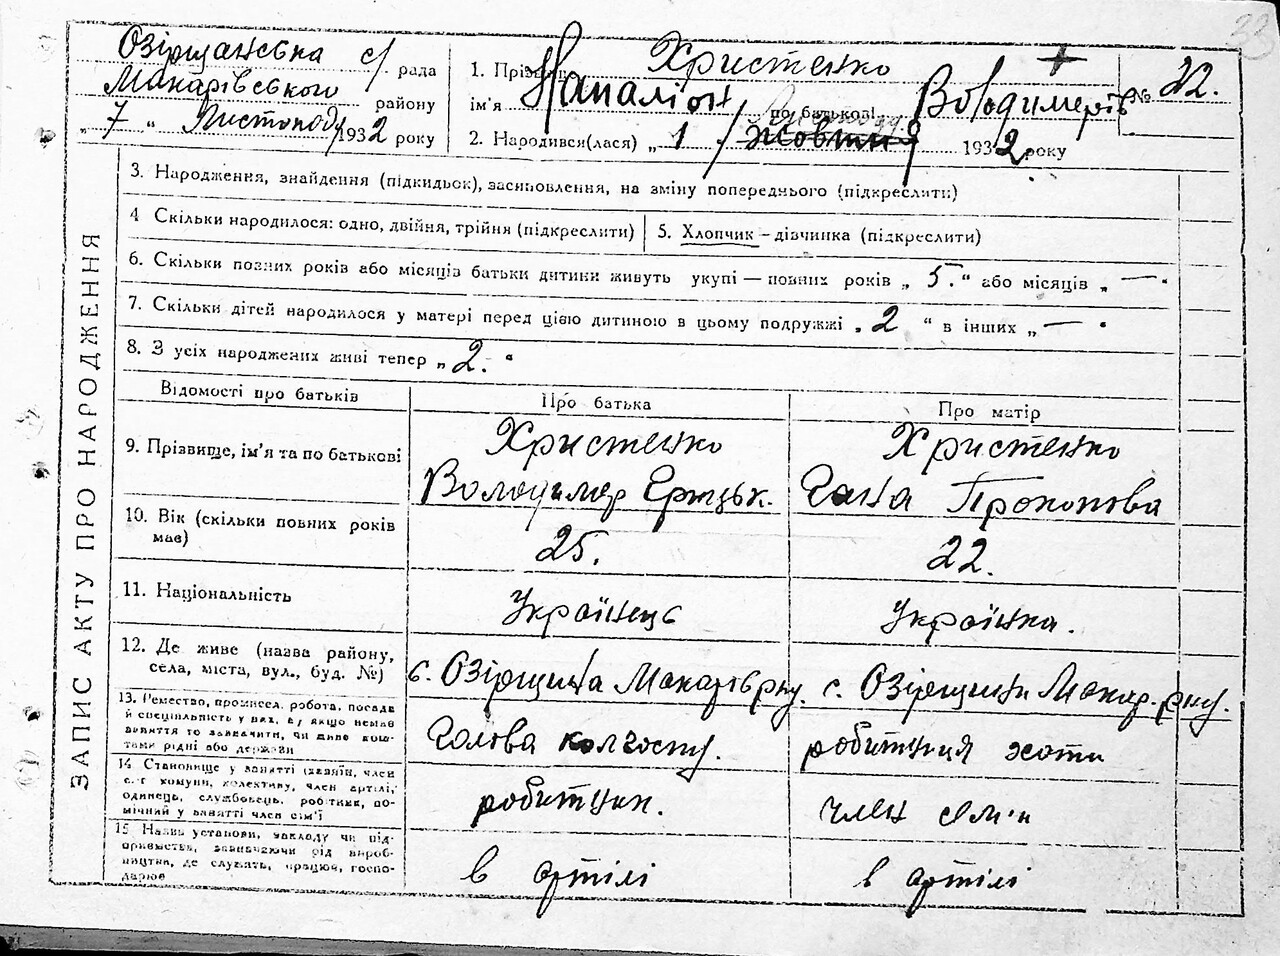 33
Озірщанська с/ рада
Макарівського району
„ 7 “ Листопаду 1932 року
1. Прізвище Христенко
ім'я Напаліон по батькові Володимерів № 22.
2. Народився(лася) „ 1 / жовтня 1932 року
ЗАПИС АКТУ ПРО НАРОДЖЕННЯ
3. Народження, знайдення (підкидьок), засиновлення, на зміну попереднього (підкреслити)
4 Скільки народилося: одно, двійня, трійня (підкреслити)
5. Хлопчик – дівчинка (підкреслити)
6. Скільки повних років або місяців батьки дитини живуть укупі — повних років „ 5. “ або місяців „ — .
7. Скільки дітей народилося у матері перед цією дитиною в цьому подружжі „ 2 “ в інших „ — .
8. З усіх народжених живі тепер „ 2. “
Відомості про батьків
Про батька
Про матір
9. Прізвище, ім'я та по батькові
Христенко
Володимер Грицьк.
Христенко
Гана Прокопова
10. Вік (скільки повних років
має)
25.
22.
11. Національність
Українець
Українка.
12. Де живе (назва району,
села, міста, вул., буд. №)
с. Озірщина Макарів р-ну.
с. Озірщини Макар. р-ну.
13. Ремество, промисел, робота, посада
й спеціяльність у них, а, якщо немає
заняття то зазначити, чи живе кош-
тами рідні або держави
Голова колгоспу.
робитниця хати
14 Становище у занятті (хазяїн, член
с.-г комуни, колективу, член артілі,
одинець, службовець, робітник, по-
мічний у занятті член сім'ї
робитник.
член сім'и
15 Назва установи, закладу чи під-
приємства, зазначаючи рід вироб-
ництва, де служать, працює, госпо-
дарює
в артілі
в артілі